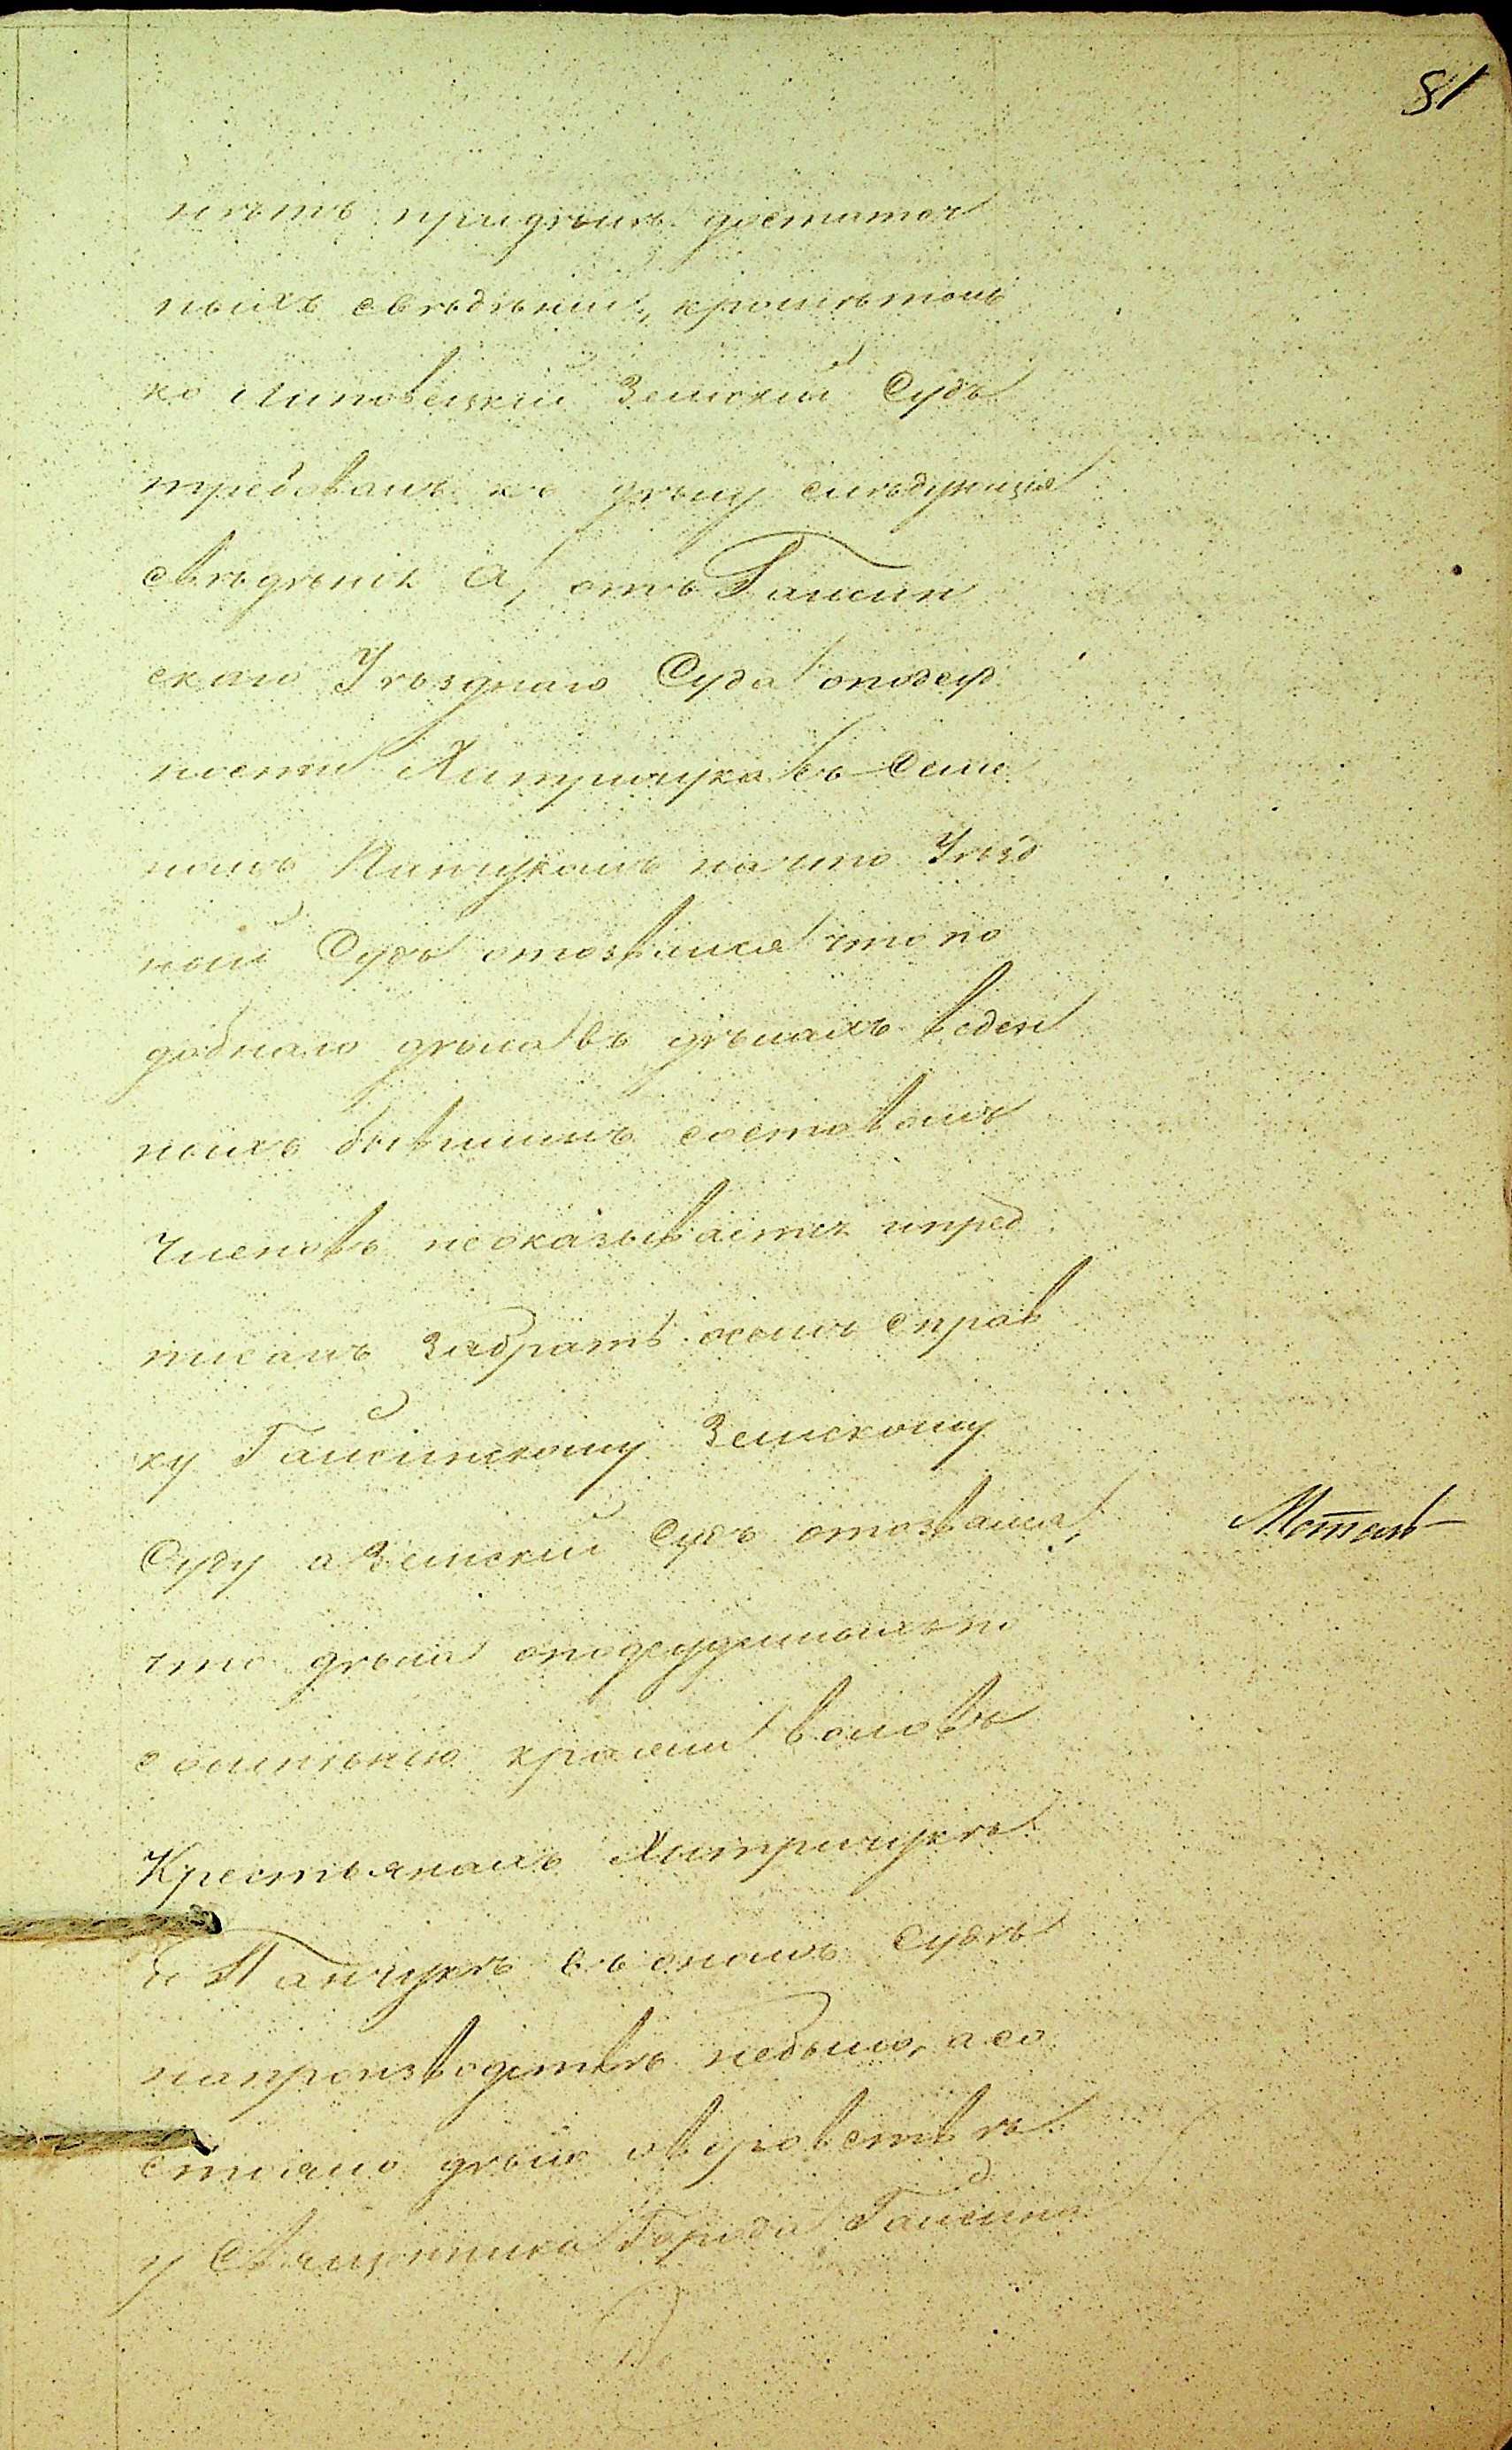 81
нѣтъ придѣлѣ достаточ
ныхъ свѣдѣній, кромѣ толь
ко Липовецкій Земскій Судъ
требовалъ къ дѣлу слѣдующія
свѣдѣнія а, отъ Гайсин
скаго Уѣзднаго Суда оподсуд
ности Хитричука съ Семе
номъ Панчукомъ на что Уѣзд
ной Судъ отозвался что по
добнаго дѣла въ дѣлахъ веден
ныхъ бывшимъ составомъ
Членовъ неоказывается ипред
писалъ Забрать осемъ справ
ку Гайсинскому Земскому
Суду а Земскій Судъ отозвался,
что дѣла оподсудимыхъ по
сомнѣнію кражи воловъ
Крестьянахъ Хитричукѣ
и Панчукѣ въ ономъ Судѣ
напроизводствѣ небыло, а со
стояло дѣло оворовствѣ
у Священника Города Гайсина
Мотель